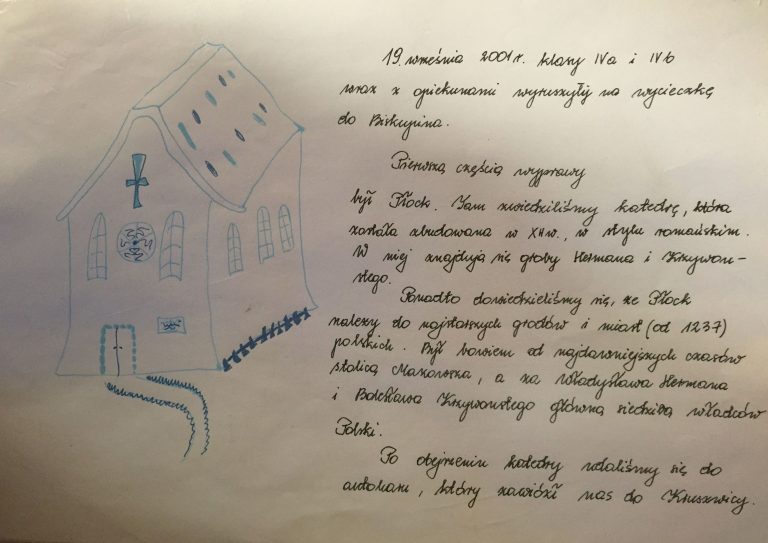 19. września 2001r. klasy IVa i IVb
wraz z opiekunami wyruszyły na wycieczkę
do Biskupina.
Pierwszą częścią wyprawy
był Płock. Tam zwiedziliśmy katedrę, która
została zbudowana w XIIw., w stylu romańskim.
W niej znajdują się groby Hermana i Krzywou-
stego.
Ponadto dowiedzieliśmy się, że Płock
należy do najstarszych grodów i miast (od 1237)
polskich. Był bowiem od najdawniejszych czasów
stolicą Mazowsza, a za Władysława Hermana
i Bolesława Krzywoustego główną siedzibą władców
Polski.
Po obejrzeniu katedry udaliśmy się do
autokaru, który zawiózł nas do Kruszwicy.